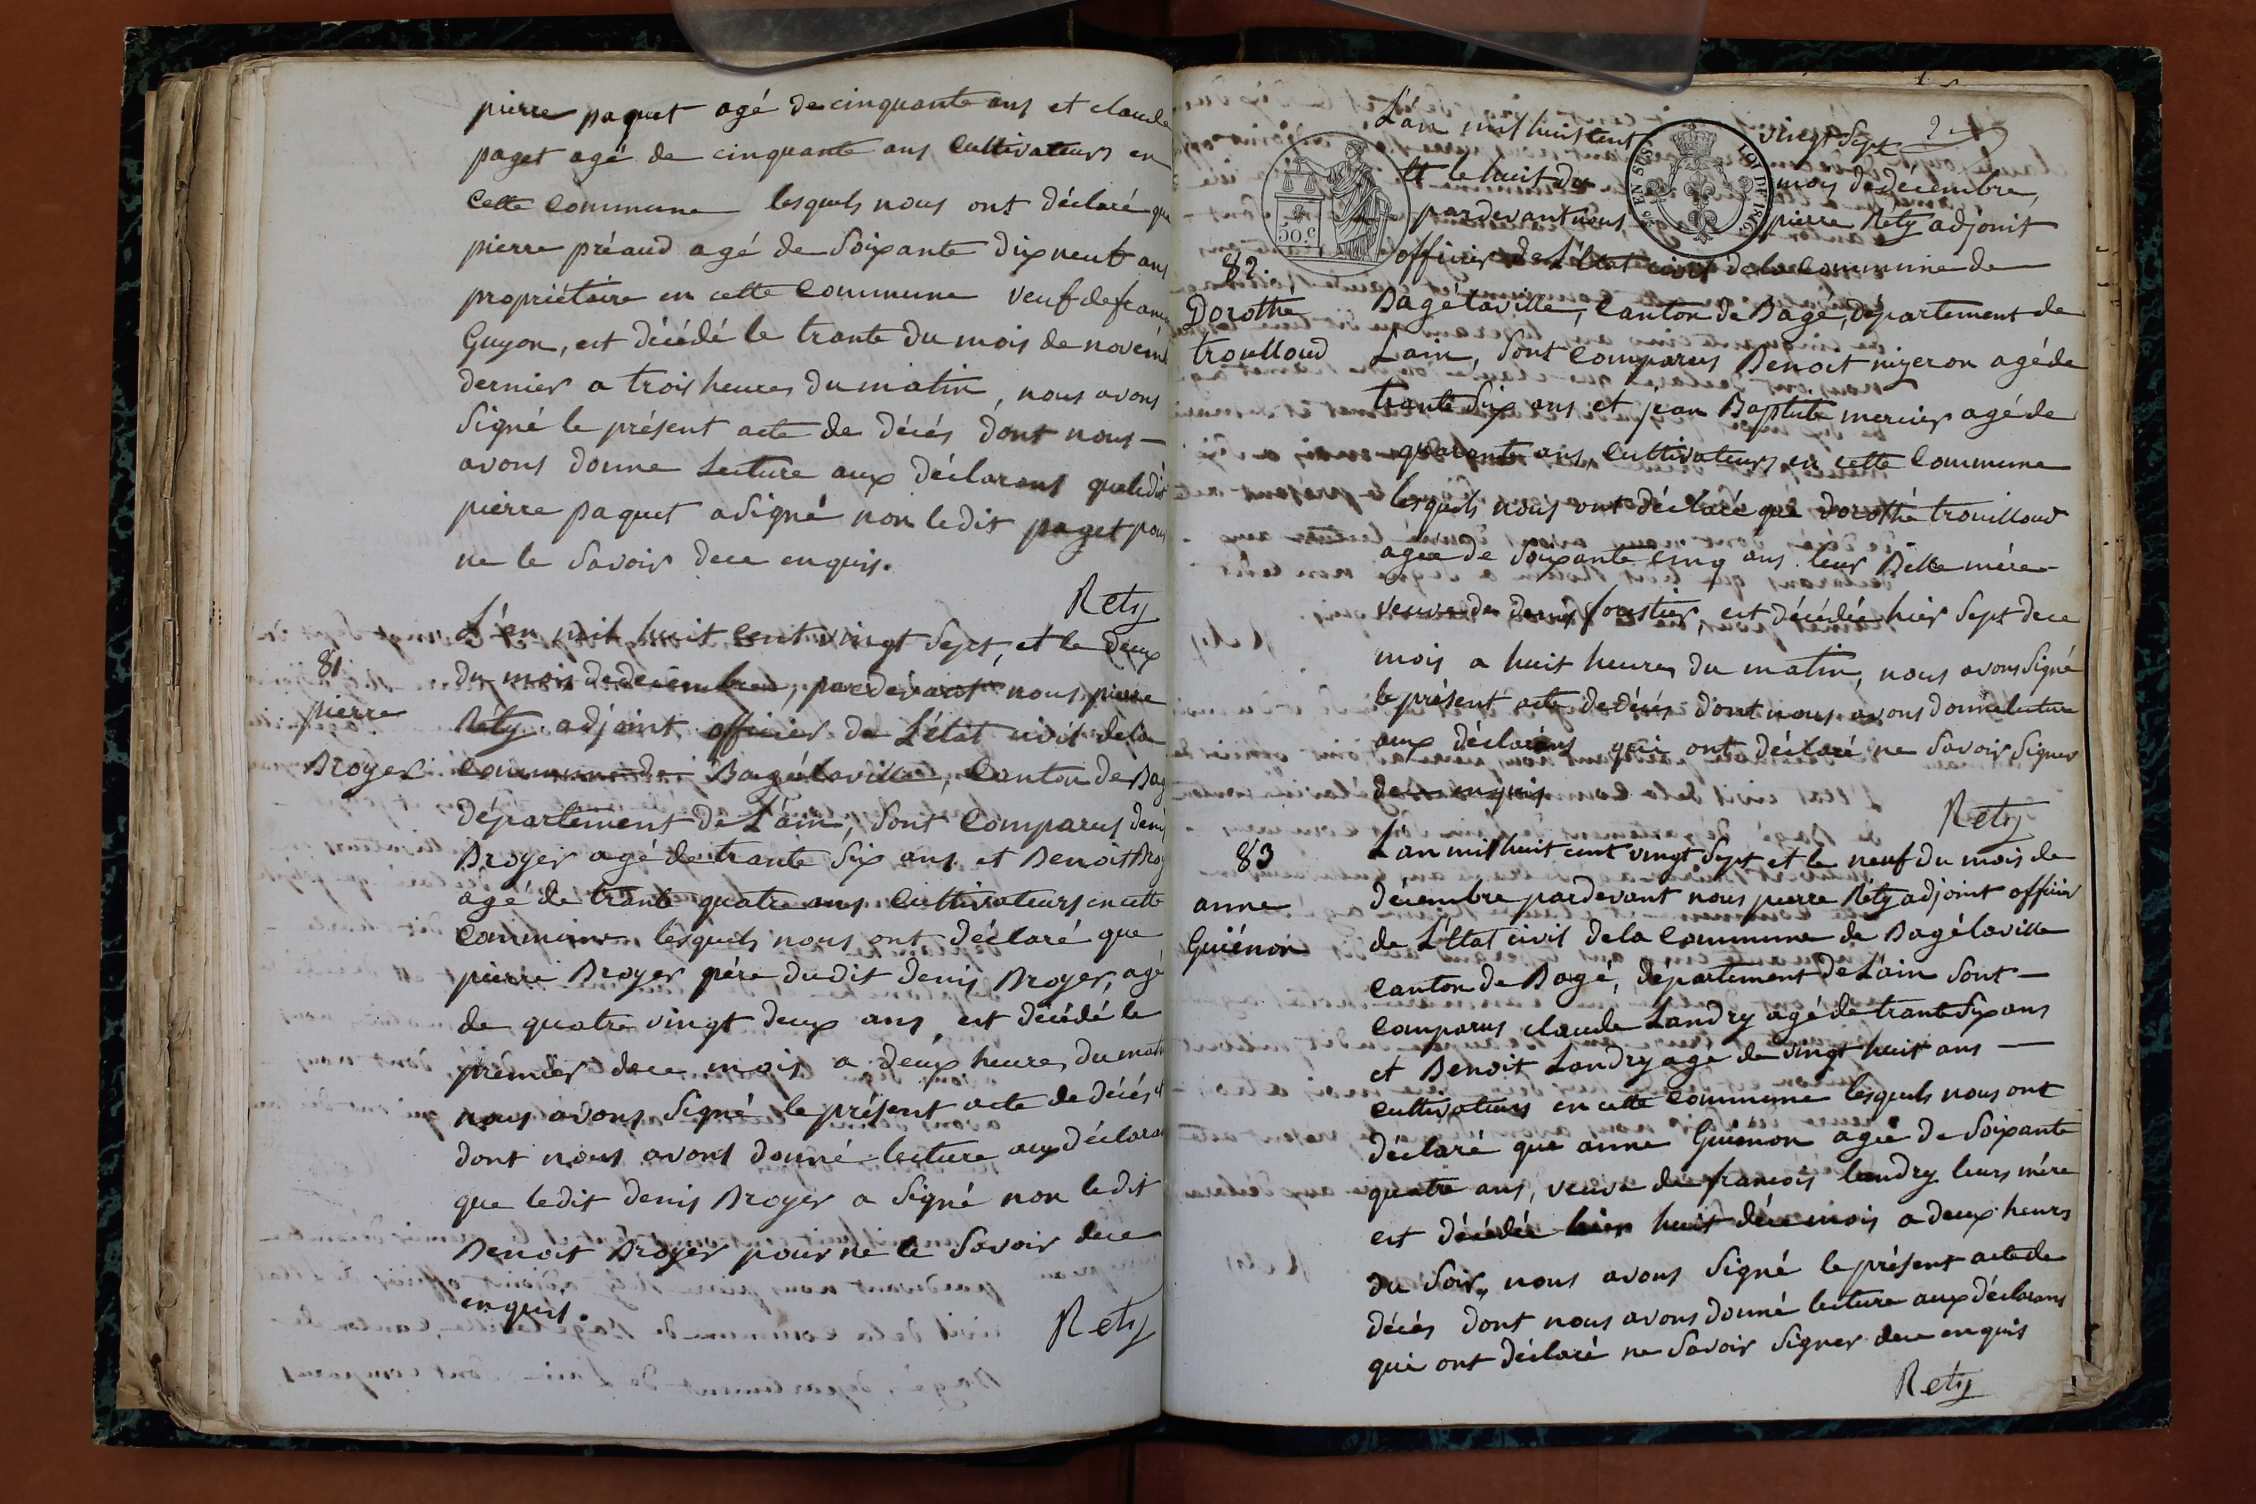 pierre paquet agé de cinquante ans et claude
paget agé de cinquante ans cultivateurs en
cette commune lesquels nous ont déclaré que
pierre préaud agé de soixante dix neuf ans
propriétaire en cette commune veuf de
Guyon, est décédé le trante du mois de novemb
dernier a trois heures du matin, nous avons
signé le présent acte de décés dont nous —
avons donne lecture aux déclarans que ledit
pierre paquet a signé non ledit paget pour
ne le savoir dece enquis.
Rety
81
pierre
Broyer
L'an mil huit cent vingt sept, et le deux
du mois de decembre, pardevant nous pierre
Réty adjoint officier de L'état civil dela
commune de Bagélaville, Canton de Bag
département de L'ain, sont comparus denis
Broyer agé de trante six ans et Benoit Broy
agé de trante quatre ans cultivateurs en cette
commune lesquels nous ont déclaré que
pierre Broyer père dudit denis Broyer, agé
de quatre vingt deux ans, est décédé le
premier dece mois a deux heures du matin
nous avons signé le présent acte de décés et
dont nous avons donné lecture aux déclaran
que ledit denis Broyer a signé non ledit
Benoit Broyer pour ne le savoir dece
enquis.
Rety
L'an mil huit cent vingt sept
Et le huit du mois de décembre,
pardevant nous pierre Réty adjoint
officier de L'Etat civil de la commune de
82
Dorothé
trouilloud
Bagélaville, Canton de Bagé, département de
Lain, sont comparus Benoit nizeron agé de
trante six ans et jean Baptiste mercier agé de
quarante ans, cultivateurs en cette commune
lesquels nous ont déclaré que dorothé trouilloud
agée de soixante cinq ans leur Belle mére
veuve de denis foustier, est décédée hier sept dece
mois a huit heures du matin, nous avons signé
le présent acte de décés dont nous avons donné lecture
aux déclarans qui ont déclaré ne savoir signer
dece enquis
Rety
83
anne
Guiénon
L'an mil huit cent vingt sept et le neuf du mois de
décembre pardevant nous pierre Réty adjoint officier
de L'Etat civil dela commune de Bagélaville
canton de Bagé, département de L'ain sont —
comparus claude Landry agé de trante six ans
et Benoit Landry agé de vingt huit ans —
cultivateurs en cette commune lesquels nous ont
déclaré que anne Guienon agée de soixante
quatre ans, veuve de francois landry leurs mére
est décédée hier huit dece mois a deux heures
du soir, nous avons signé le présent acte de
décés dont nous avons donné lecture aux déclarans
qui ont déclaré ne savoir signer dece enquis
Rety